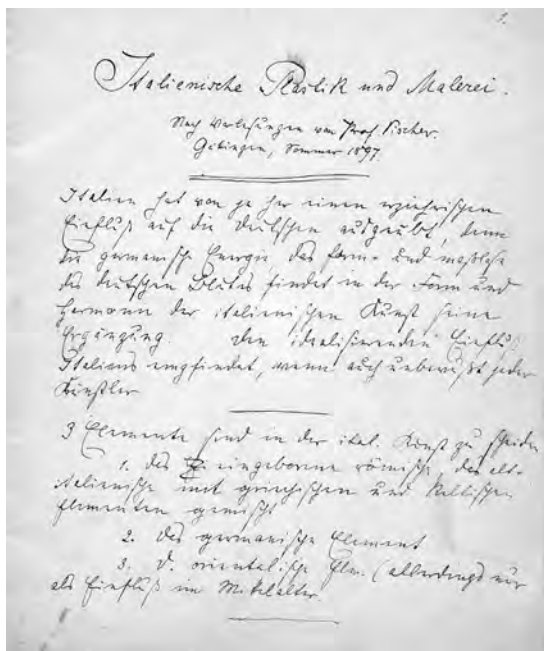 1.
Italienische Plastik und Malerei.
Nach Vorlesungen von Prof. Vischer.
Göttingen, Sommer 1897.
Italien hat von je her einen erzieherischen
Einfluß auf die Deutschen ausgeübt, denn
die germanische Energie, das form- und maßlose
des deutschen Blutes findet in der Form und
der italienischen Kunst seine
Ergänzung. Den idealisierenden Einfluß
Italiens empfindet, wenn auch unbewußt jeder
Künstler
3 Elemente sind in der ital. Kunst zu scheiden
1. das eingeborene römische, das alt-
italienische mit griechischen und keltischen
Elementen gemischt
2. das germanische Element
3. d. orientalische Elm. (allerdings nur
als Einfluß im Mittelalter.